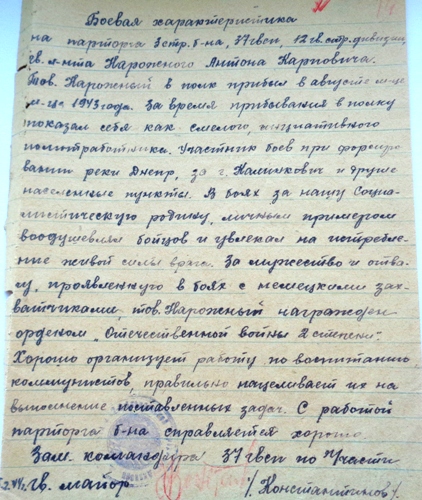 Боевая характеристика
на парторга 3 стр. б-на, 37 гвсп, 12 гв. стр. дивизии
гв. л-нта Нарожного Антона Карповича.
Тов. Нарожный в полк прибыл в августе меся-
1943 года. За время прибывания в полку
показал себя как смелого, инциативного
политработника. Участник боев при форсиро-
вании реки Днепр, за г. Калинкович и другие
населенные пункты. В боях за нашу Социа-
листическую родину, личным примером
воодушевлял бойцов и увлекал на истребле-
ние живой силы врага. За мужество и отва-
гу, проявленную в боях с немецкими зах-
ватчиками, тов. Нарожный награжден
орденом "Отечественной войны 2 степени".
Хорошо организует работу по воспитанию
коммунистов, правильно нацеливает их на
выполнение поставленных задач. С работой
парторга б-на справляется хорошо
Зам. командира 37 гвсп по п/части
гв. майор /Константинов/.